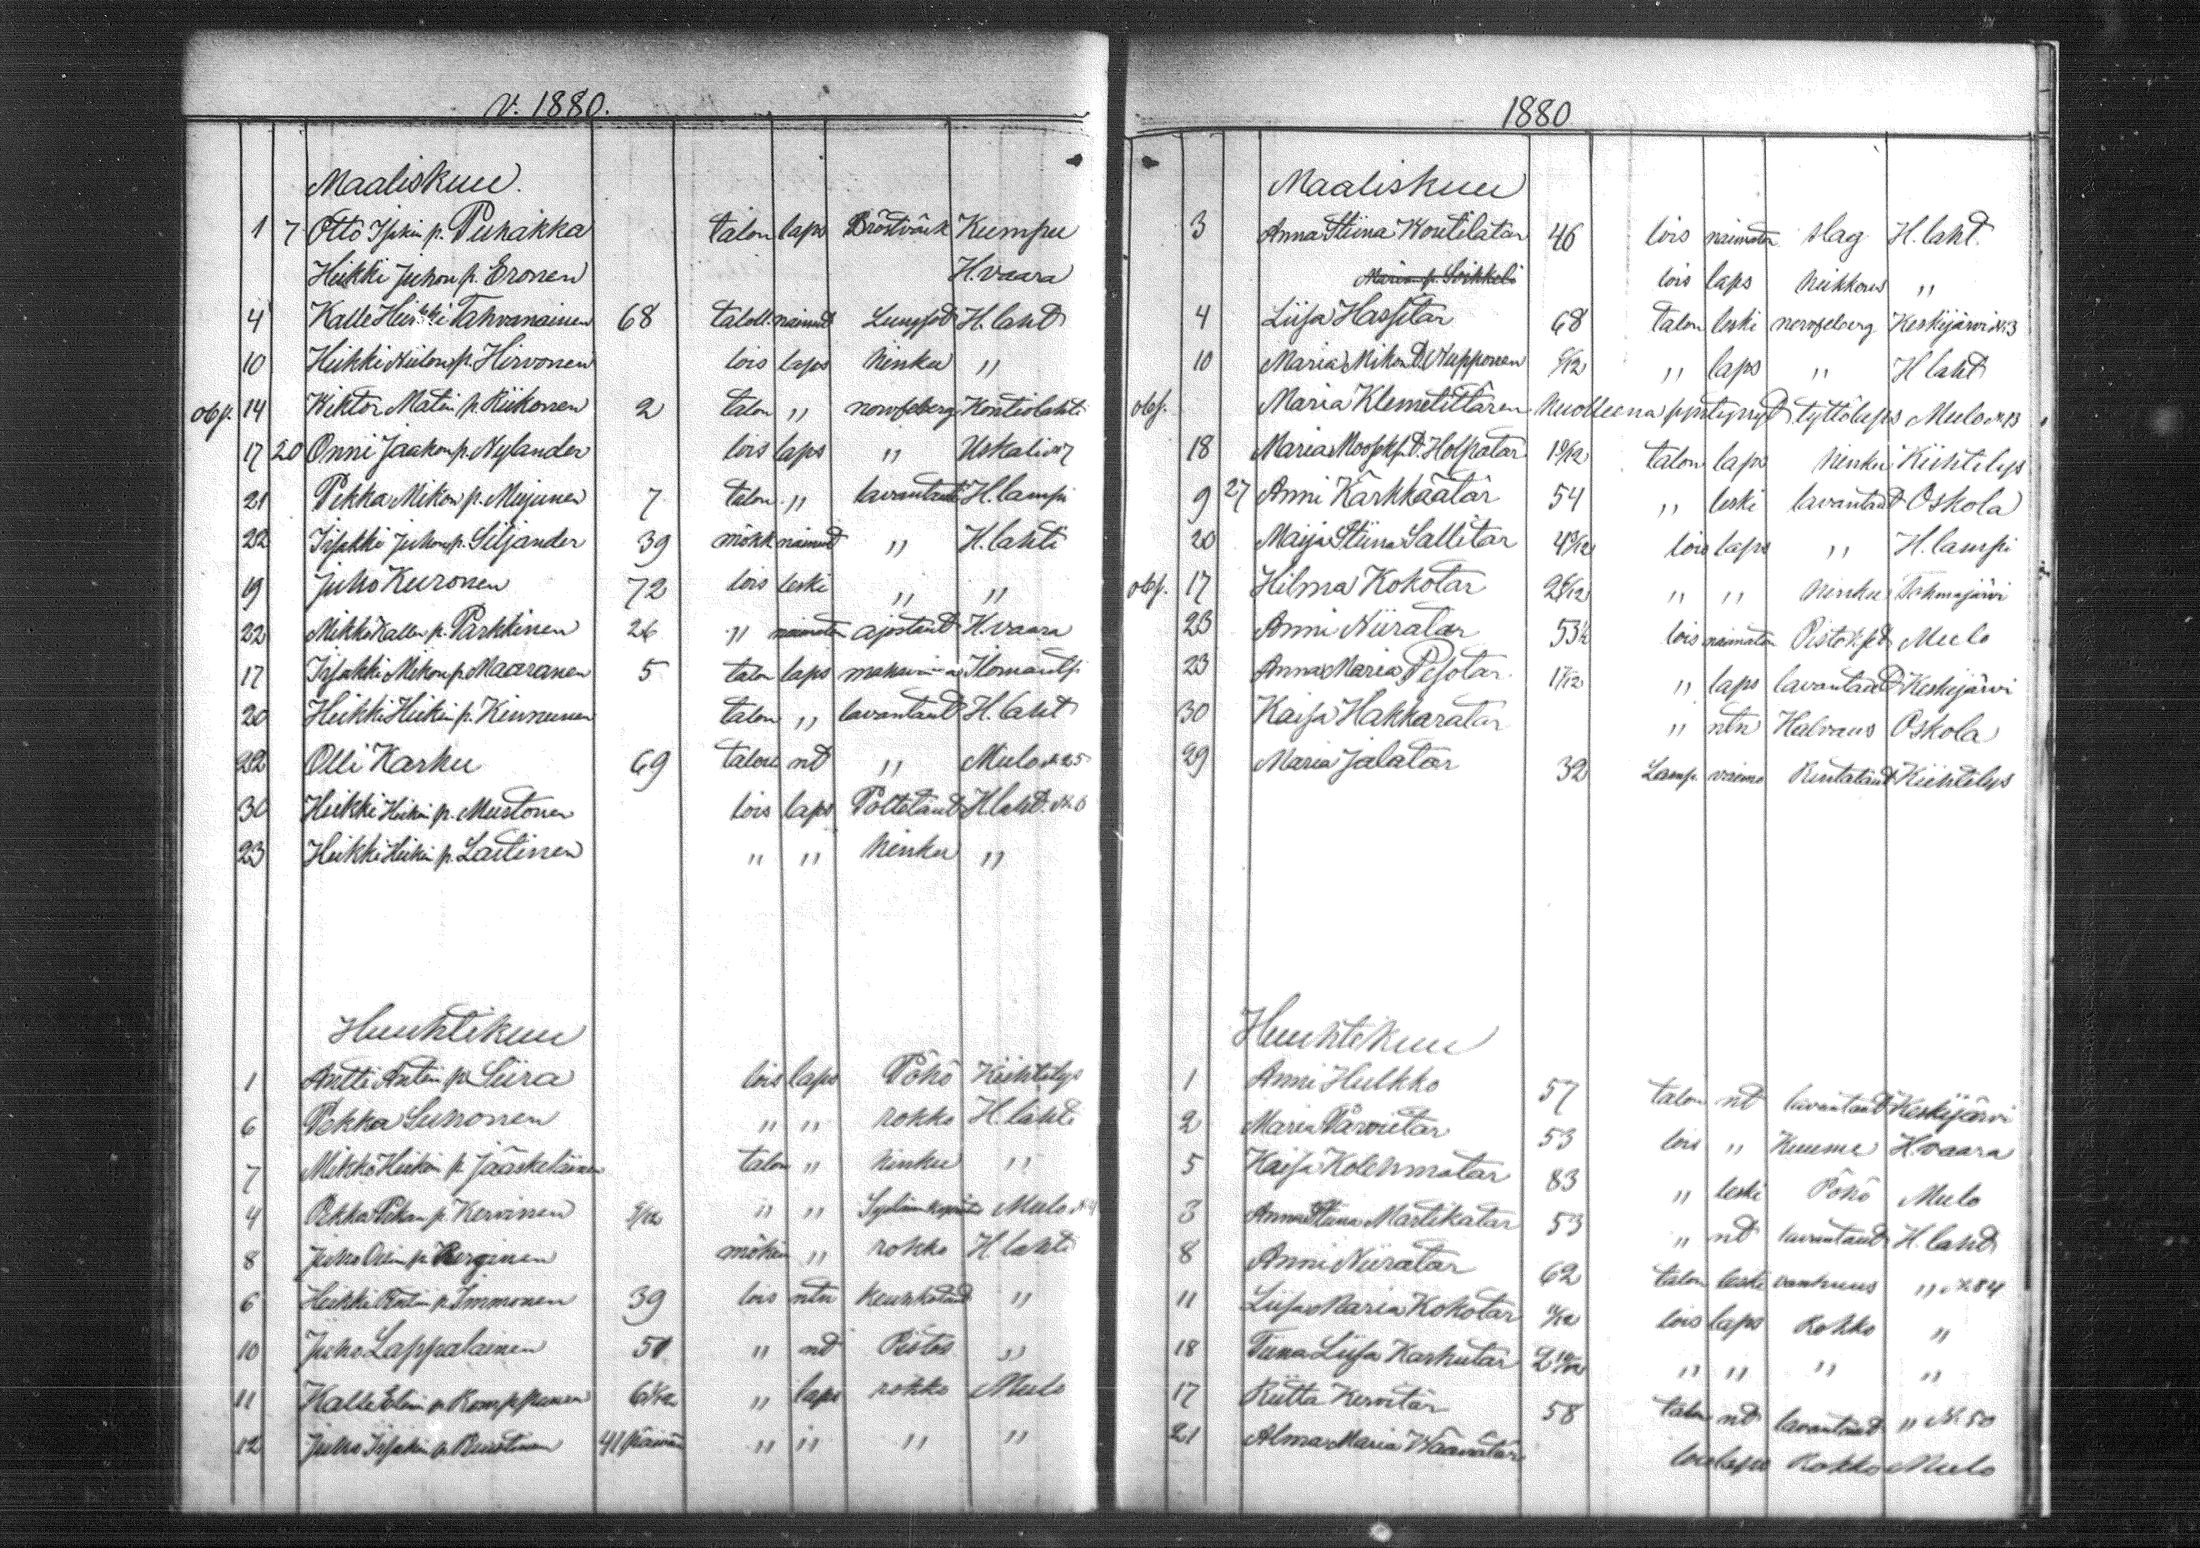 v. 1880.
Maaliskuu.
1 7 Otto Isakin p. Puhakka talon laps Bröstvärk Kumpu
Heikki Juhon p. Eronen H.vaara
4 Kalle Heikki Tahvanainen 68 taloll. nainut Lungsot H. laht
10 Heikki Niilon p. Hirvonen lois laps hinku "
obs. 14 Wiktor Matin p. Riikonen 2 talon " nervfeberg Kontiolahti
17 20 Onni Jaakon p. Nylander lois laps " Uskali
21 Pekka Mikon p. Miijunen 7 talon " lavantaut H. lampi
22 Isakki Juhon p. Siljander 39 mökk nainut " H. lahti
19 Juho Kuronen 72 lois leski " "
22 Mikko Kallen p. Parkkinen 26 " naimaton ajostaut H. vaara
17 Isakki Mikon p. Maaranen 5 talon laps Ilomants.
20 Heikki Heikin p. Kinnunen talon " lavantaut H. laht
22 Olli Karku 69 talon nt " Mulo № 25
30 Heikki Heikin p. Mustonen lois laps Polttotaut H. laht. № 6
23 Heikki Heikin p. Laitinen " " hinku "
Huuhtikuu
1 Antti Antin p. Siira lois laps Pöhö Kiihtelys
6 Pekka Suhonen " " rokko H. lahti
7 Mikko Heikin p. Jääskeläinen talon " hinku "
4 Pekka Pekan p. Kervinen 9/12 " " Mulo
8 Juho Ollin p. mökin " rokko H. lahti
6 Heikki Antin p. Immonen 39 lois ntn keuhkotaut "
10 Juho Lappalainen 51 " nt Pistos "
11 Kalle Elin p. Romppanen 6 " laps rokko Mulo
12 Juho Isakin p. 41 päivän " " " "
1880
Maaliskuu
3 Anna Stiina Woutilatar 46 lois naimaton slag H. laht.
Maria p. Soikkeli lois laps heikkous "
4 Liisa Hassitar 68 talon leski nervfeberg Keskijärvi № 3
10 Maria Mikon t. Nupponen 9/12 " laps " H laht
obs. Maria Klemetittären kuolleena syntynyt tyttölaps Mulo № 13
18 Maria t. Holpatar 10/12 talon laps hinku Kiihtelys
9 27 Anni Karkkäätär 54 " leski lavantaut Oskola
20 Maija Stiina Sallitar 4 lois laps " H. lampi
obs. 17 Hilma Kokotar 2 " " hinku Tohmajärvi
23 Anni Niiratar 53½ lois naimaton Pistokset Mulo
23 Anna Maria Pesotar 11/12 " laps lavantaut Keskijärvi
30 Kaisa Hakkaratar " ntn Halvaus Oskola
29 Maria Jalatar 32 Lamp. vaimo Rintataut Kiihtelys
Huuhtikuu
1 Anni Hulkko 57 talon nt lavantaut Keskijärvi
2 Maria Pärvietar 53 lois " Kuume H. vaara
5 Kaisa Kolehmatar 83 " leski Pöhö Mulo
3 Anna Stiina Martikatar 53 " nt lavantaut H. laht
8 Anni Niiratar 62 talon leski vanhuus " № 84
11 Liisa Maria Kokotar lois laps Rokko "
18 Tiina Liisa Karhutar 2 " " " "
17 Riitta Kervitär 58 talon nt lavantaut " № 50
21 Alma Maria Wäänätär lois laps Rokko Mulo